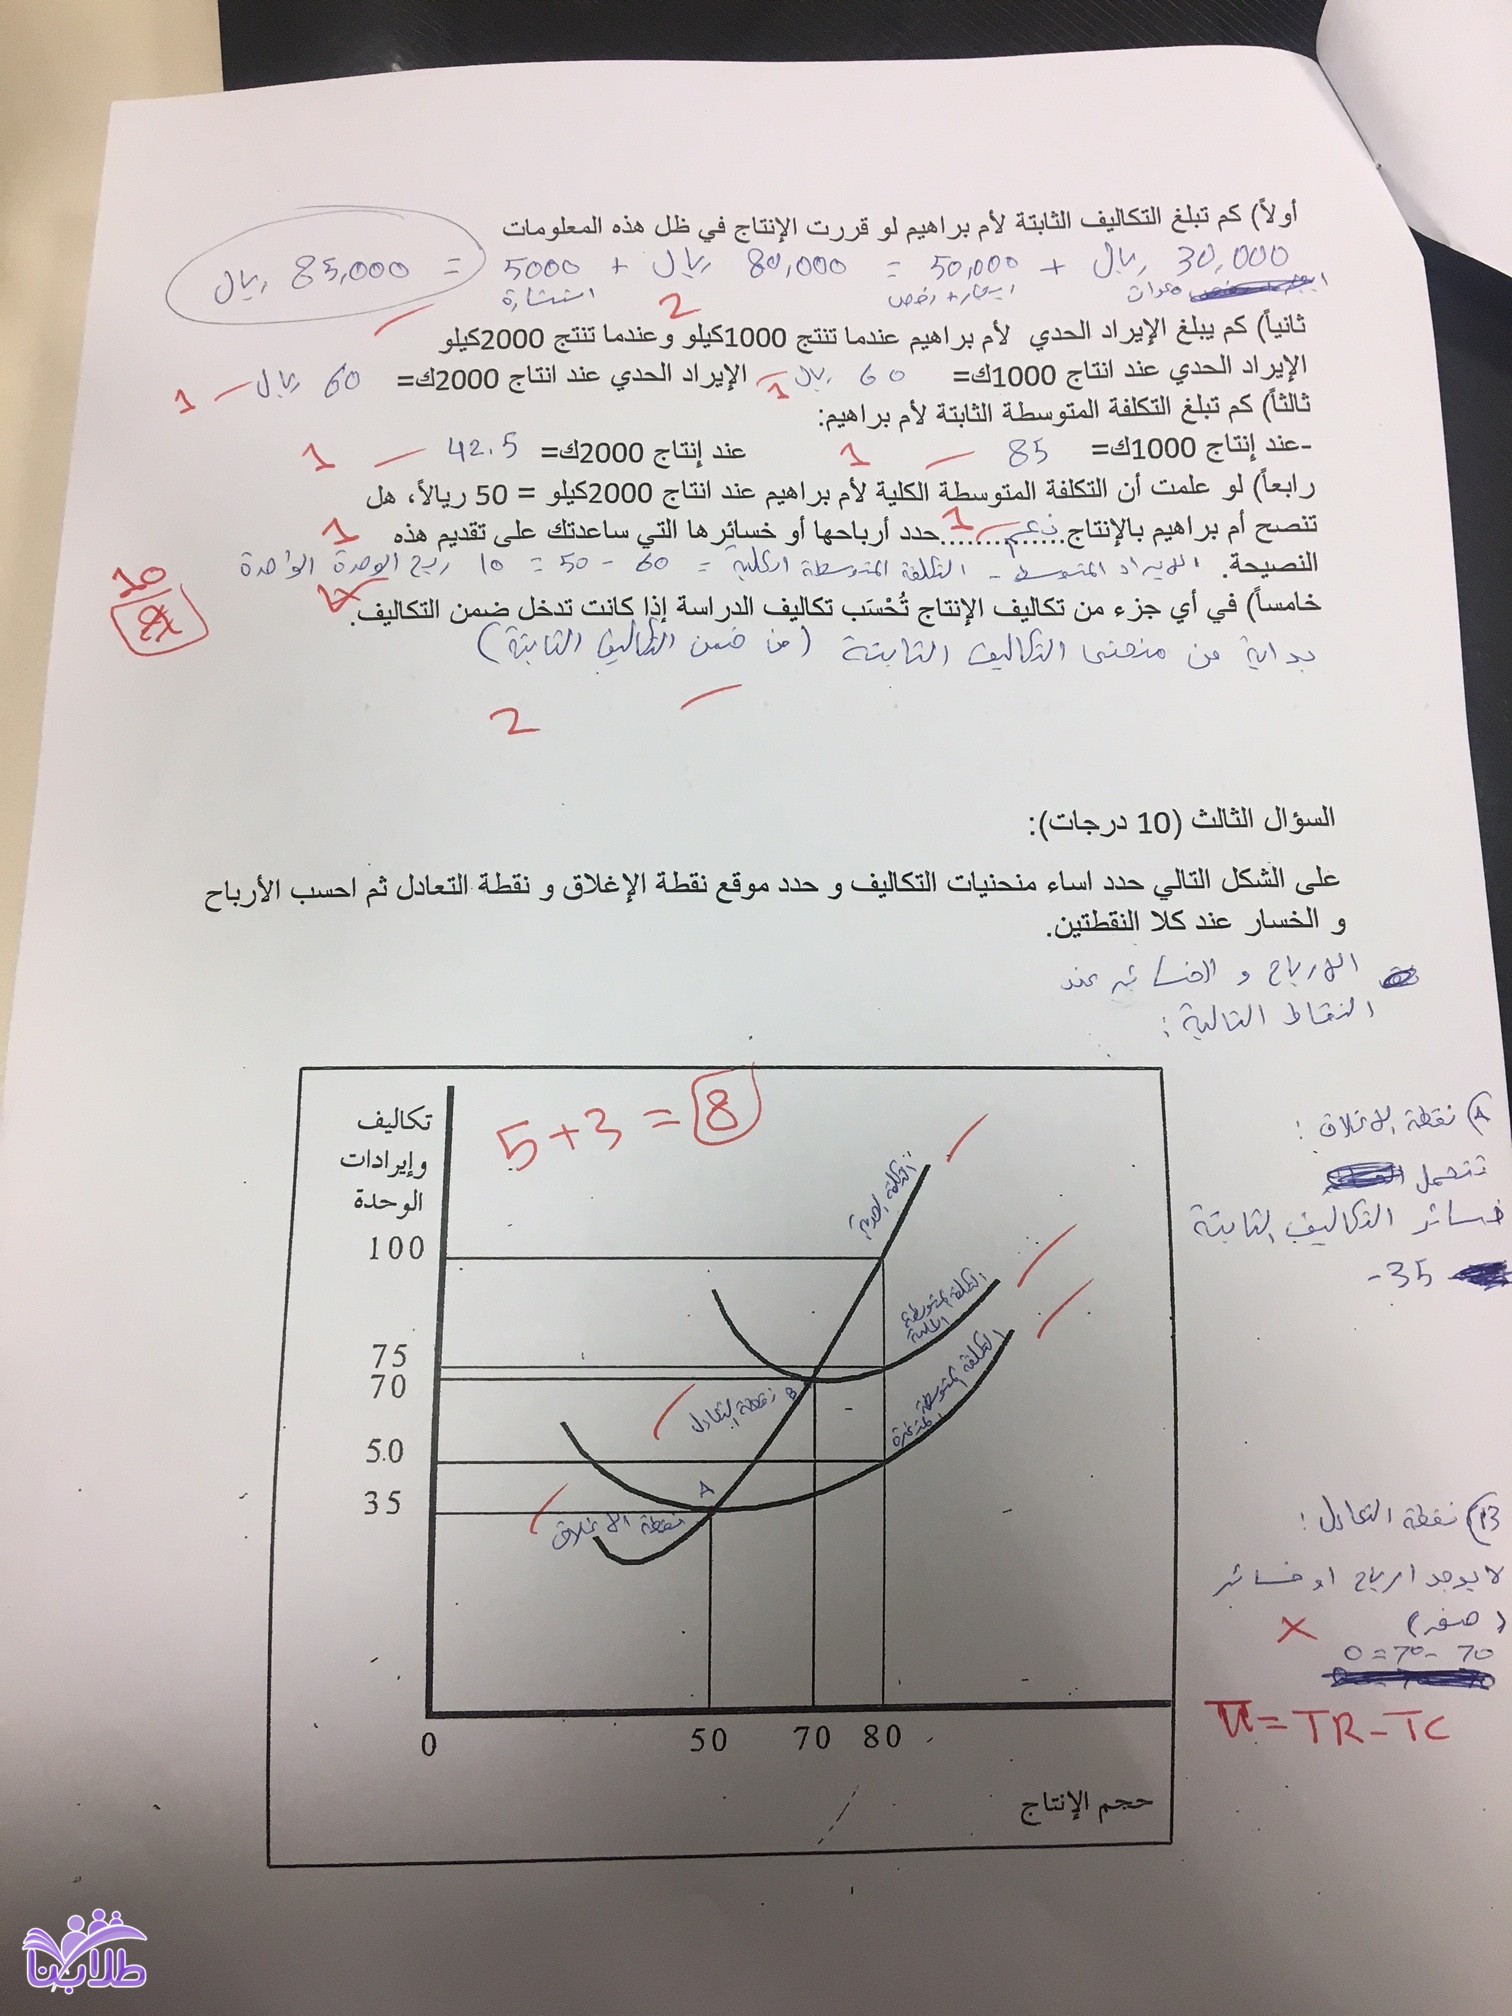 أولاً) كم تبلغ التكاليف الثابتة لأم براهيم لو قررت الإنتاج في ظل هذه المعلومات
30,000 ريال + 50,000 = 80,000 ريال + 5000 = 85,000 ريال
معدات ايجار + رخص استشارة
2
ثانياً) كم يبلغ الإيراد الحدي لأم براهيم عندما تنتج 1000كيلو وعندما تنتج 2000كيلو
الإيراد الحدي عند انتاج 1000ك= 60 ريال 1 الإيراد الحدي عند انتاج 2000ك= 60 ريال 1
ثالثاً) كم تبلغ التكلفة المتوسطة الثابتة لأم براهيم:
-عند إنتاج 1000ك= 85 1 عند إنتاج 2000ك= 42.5 1
رابعاً) لو علمت أن التكلفة المتوسطة الكلية لأم براهيم عند انتاج 2000كيلو = 50 ريالاً، هل
تنصح أم براهيم بالإنتاج......نعم......1 حدد أرباحها أو خسائرها التي ساعدتك على تقديم هذه 1
النصيحة. الايراد المتوسط - التكلفة المتوسطة الكلية = 60 - 50 = 10 ربح الوحدة الواحدة
10
خامساً) في أي جزء من تكاليف الإنتاج تُحْسَب تكاليف الدراسة إذا كانت تدخل ضمن التكاليف.
بداية من منحنى التكاليف الثابتة (من ضمن التكاليف الثابتة)
2
السؤال الثالث (10 درجات):
على الشكل التالي حدد اساء منحنيات التكاليف و حدد موقع نقطة الإغلاق و نقطة التعادل ثم احسب الأرباح
و الخسار عند كلا النقطتين.
الارباح و الخسائر عند
النقاط التالية:
تكاليف
وإيرادات
الوحدة
5+3 = 8
A) نقطة الاغلاق:
تتحمل
خسائر التكاليف الثابتة
-35
التكلفة الحدية
100
التكلفة المتوسطة الكلية
75
70
التكلفة المتوسطة المتغيرة
B نقطة التعادل
5.0
A
35
نقطة الاغلاق
B) نقطة التعادل:
لا يوجد ارباح او خسائر
(صفر)
×
70 - 70 = 0
π = TR - TC
0 50 70 80
حجم الإنتاج
طلابنا